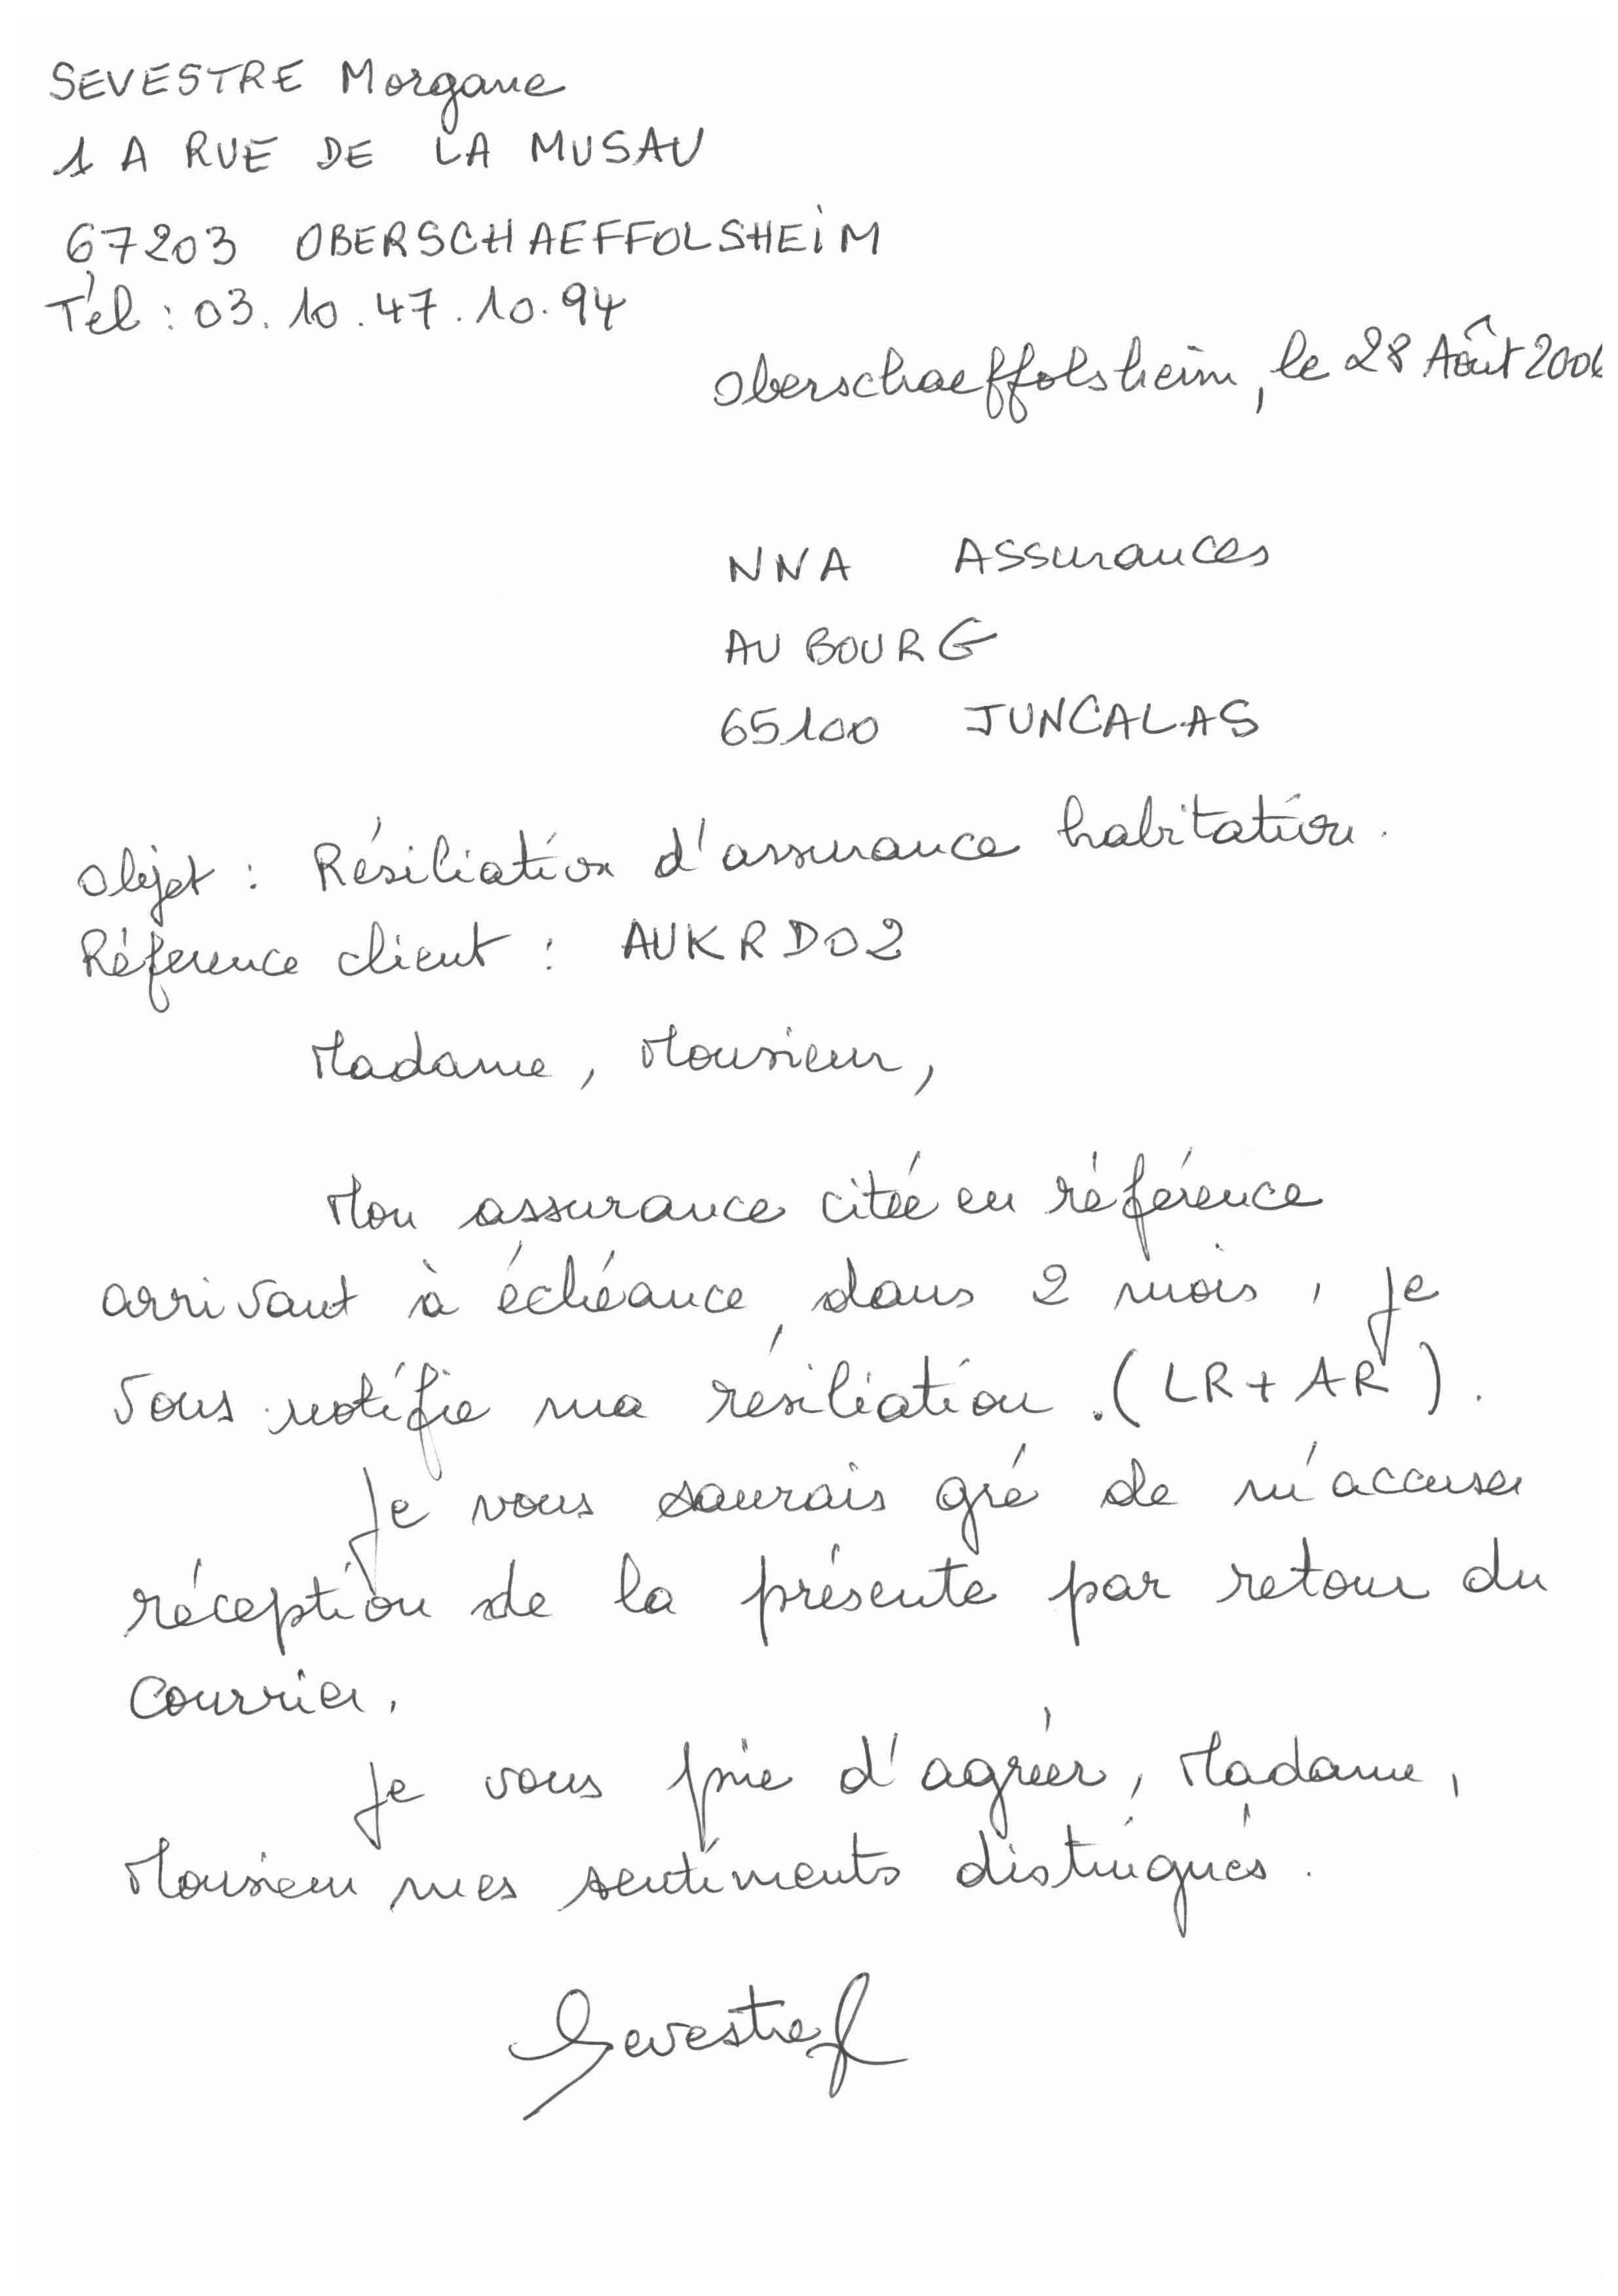 SEVESTRE Morgane
1 A RUE DE LA MUSAU
67203 OBERSCHAEFFOLSHEIM
Tél : 03.10.47.10.94
Oberschaeffolsheim, le 28 Août 2006
NNA Assurances
AU BOURG
65100 JUNCALAS
Objet : Résiliation d'assurance habitation.
Réference client : AUKRD02
Madame, Monsieur,
Mon assurance citée en référence
arrivant à échéance dans 2 mois, je
vous notifie ma résiliation. (LR+AR).
Je vous saurais gré de m'accuser
réception de la présente par retour du
courrier.
Je vous prie d'agréer, Madame,
Monsieur mes sentiments distingués.
Sevestre